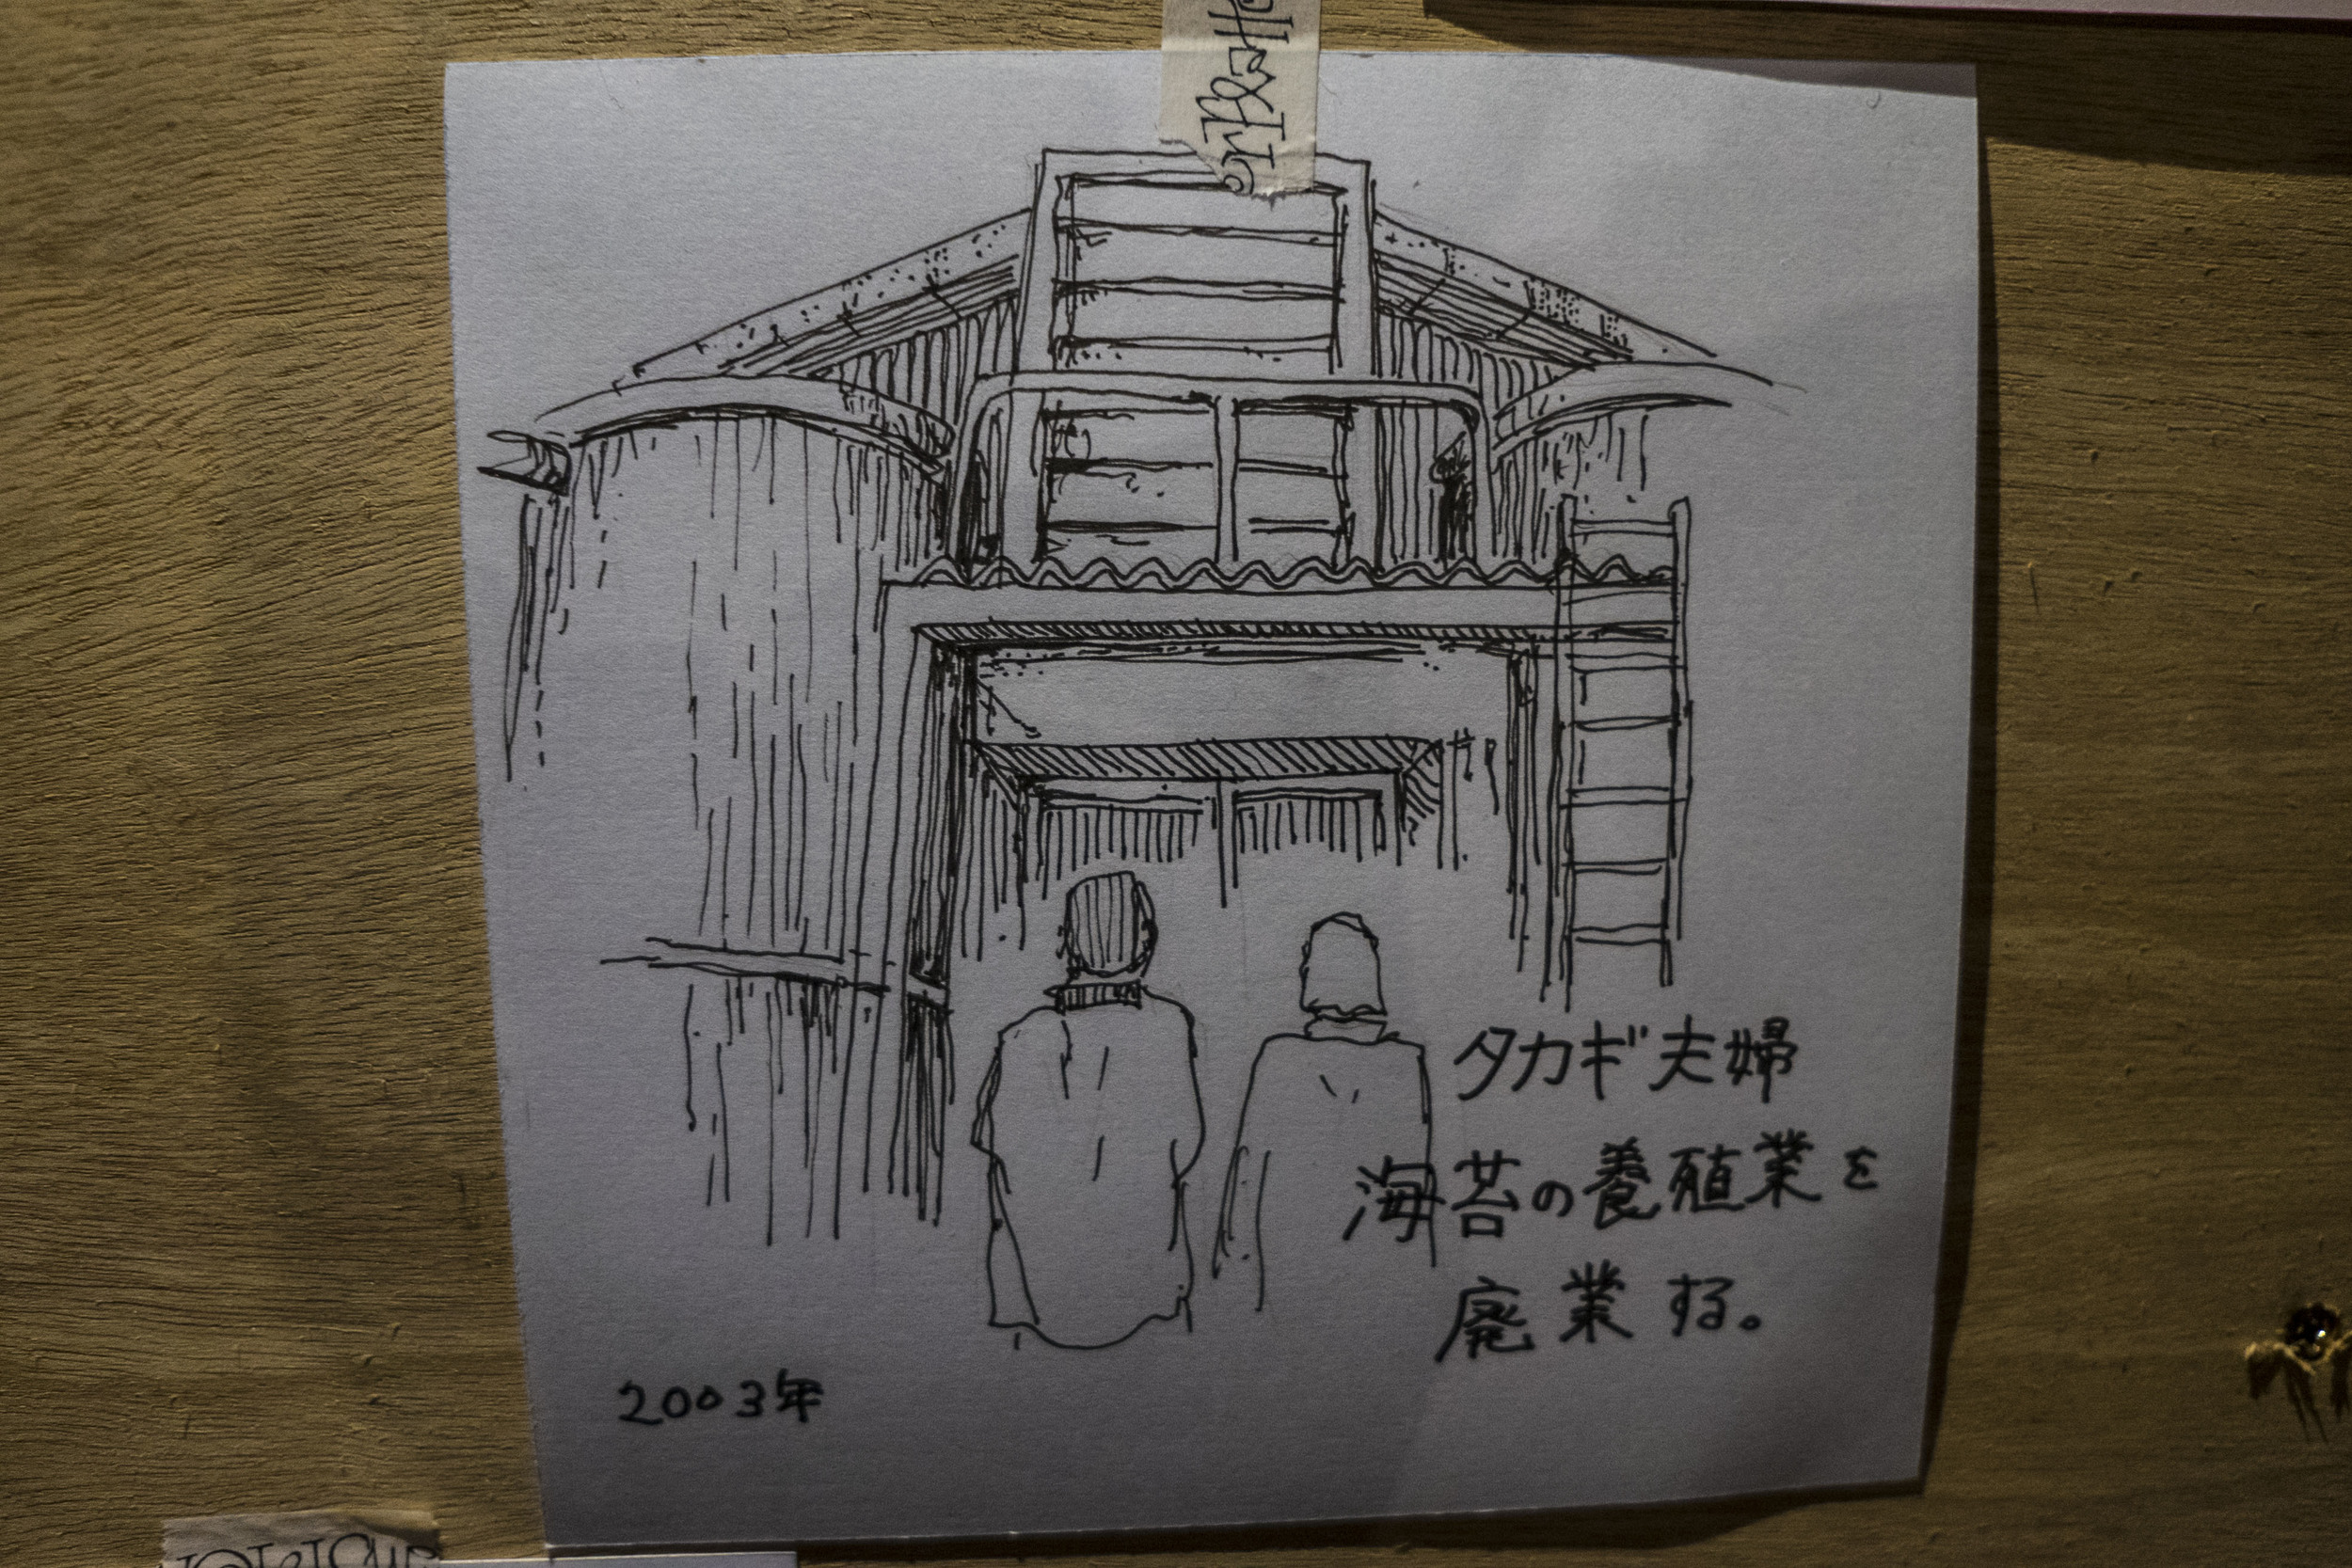 タカギ夫婦
海苔の養殖業を
廃業する。
2003年